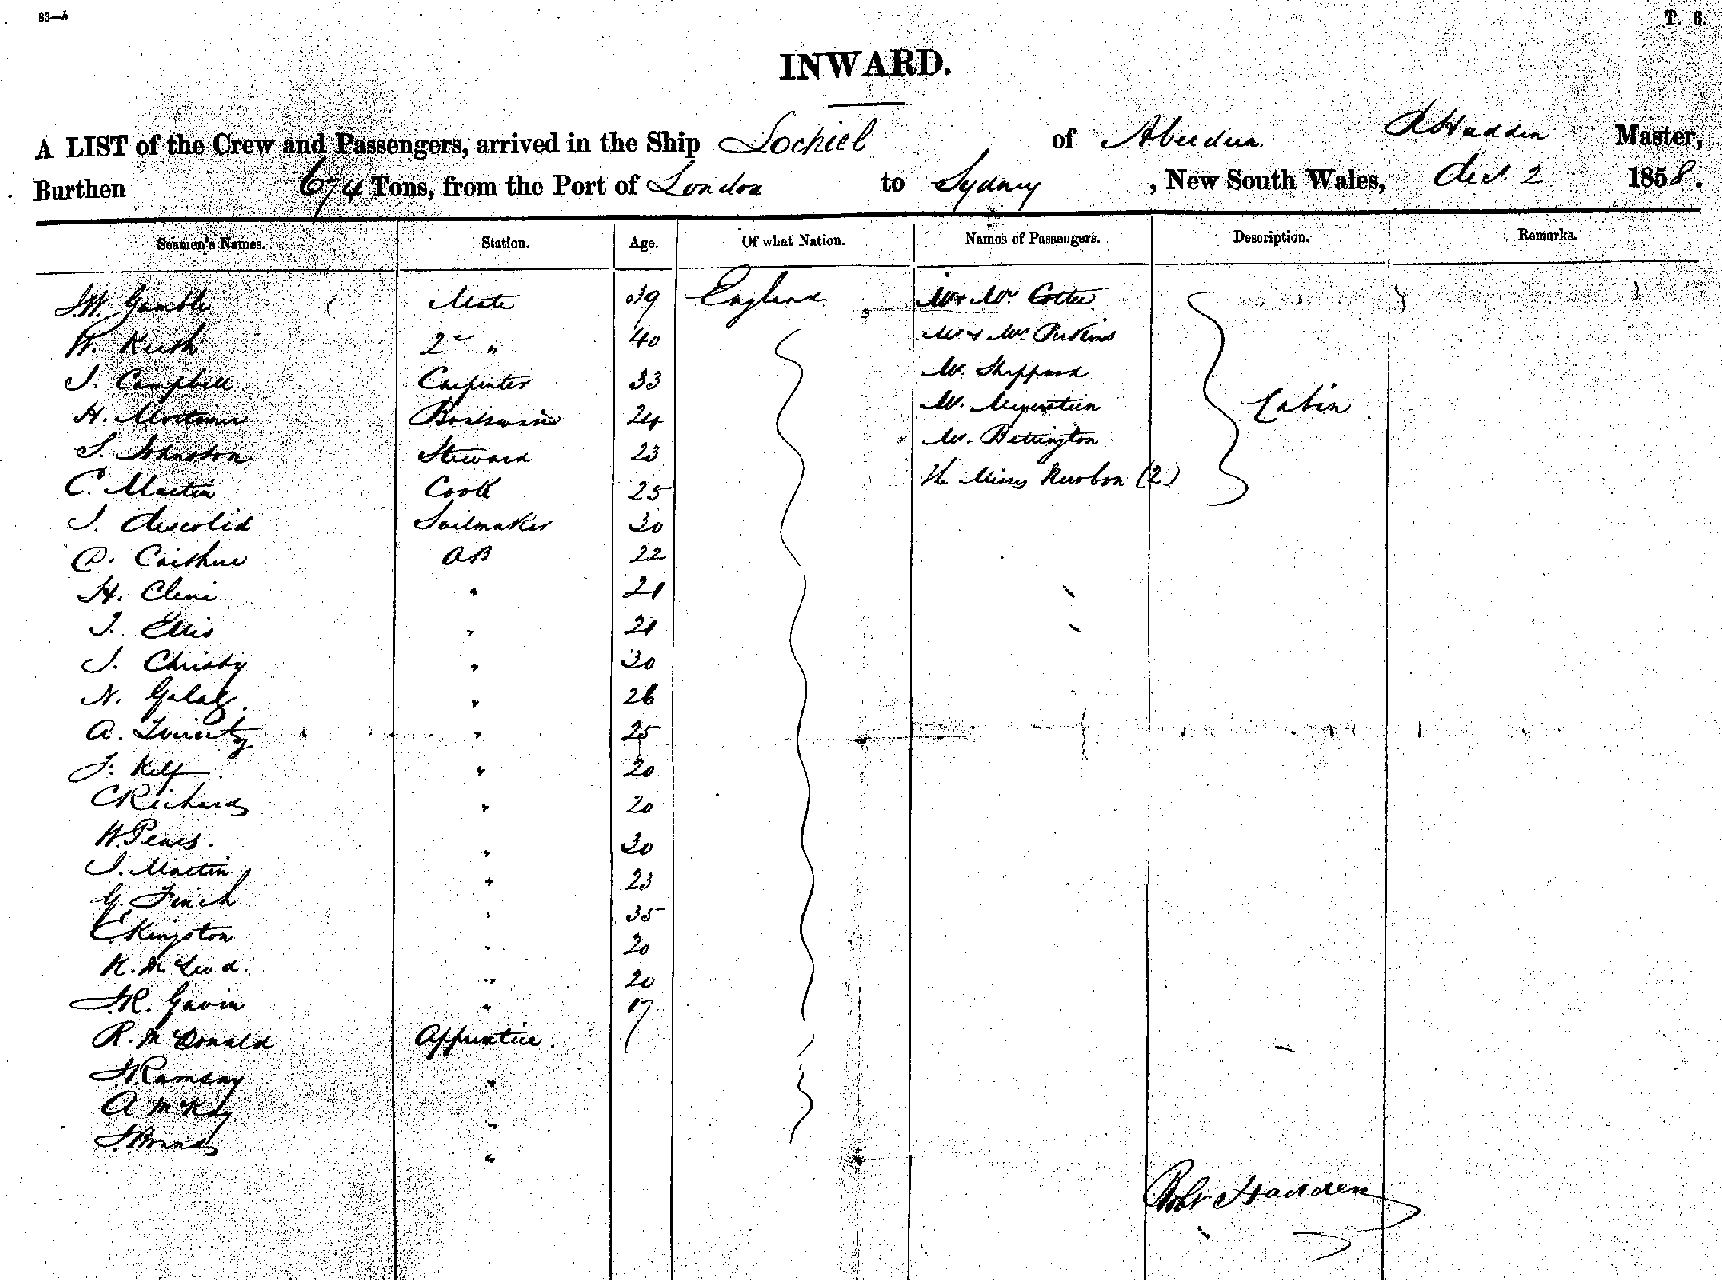 83—
T. 6.
INWARD.
A LIST of the Crew and Passengers, arrived in the Ship Lochiel of Aberdeen R Hadden Master,
Burthen 674 Tons, from the Port of London to Sydney, New South Wales, Dec 2 1858.
Seamen's Names. Station. Age. Of what Nation. Names of Passengers. Description. Remarks.
Mate England
W. 2nd " 40 Mr & Mrs Perkins
J. Campbell Carpenter 33 Mr. Sheppard
H. Boatswain 24 Mr. Cabin
S. Johnston Steward 23 Mr. Bettington
C. Martin Cook 25 The Misses (2)
J. Sailmaker 30
AB 22
H. Cline " 21
J. Ellis " 21
J. Christy " 30
N. " 26
A. " 25
J. Kelf " 20
C Richards " 20
W. Pears. " 30
J. Martin " 23
G. Finch " 35
C. Kingston " 20
McLeod. " 20
Gavin " 17
R. McDonald Apprentice.
Ramsay "
A McKay "
"
Robt Hadden